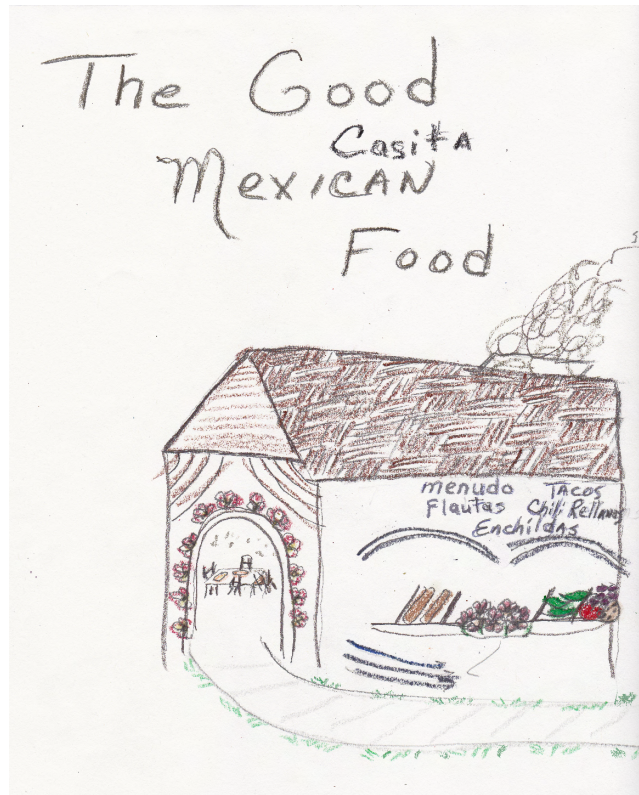 The Good
Casita
MexiCAN
Food
menudo TACOS
Flautas Chili Rellanos
Enchildas